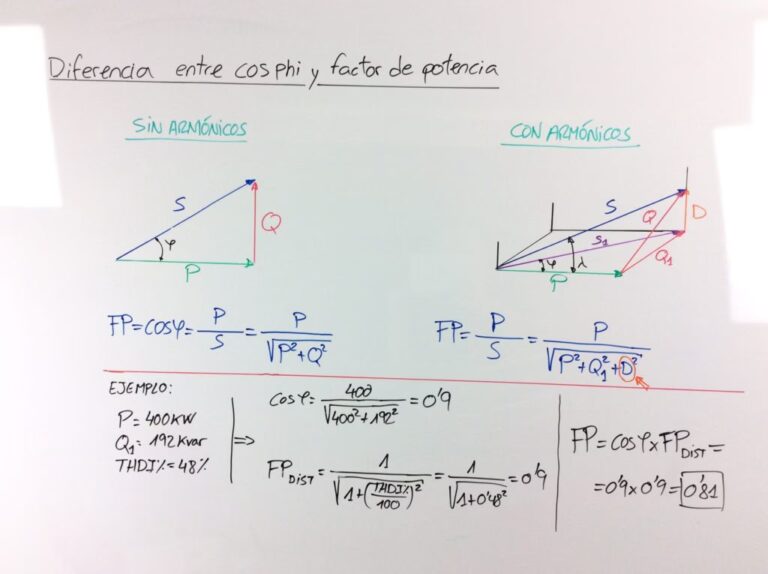 Diferencia entre cosphi y factor de potencia
SIN ARMÓNICOS
CON ARMÓNICOS
S
Q
φ
P
S
Q
D
S₁
Q₁
φ
λ
P
FP=cosφ= P/S = P/√(P²+Q²)
FP= P/S = P/√(P²+Q₁²+D²)
EJEMPLO:
P=400KW
Q₁=192Kvar
THDI%=48%
=>
cosφ= 400/√(400²+192²) =0'9
FP_DIST = 1/√(1+(THDI%/100)²) = 1/√(1+0'48²) =0'9
FP=cosφxFP_DIST=
=0'9x0'9=0'81